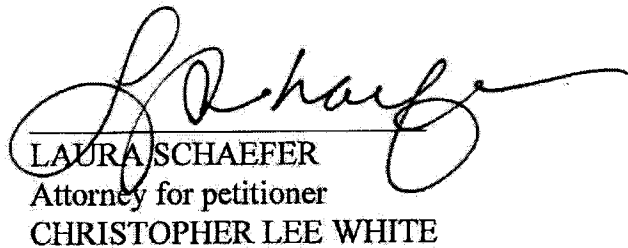 L Schaefer
LAURA SCHAEFER
Attorney for petitioner
CHRISTOPHER LEE WHITE